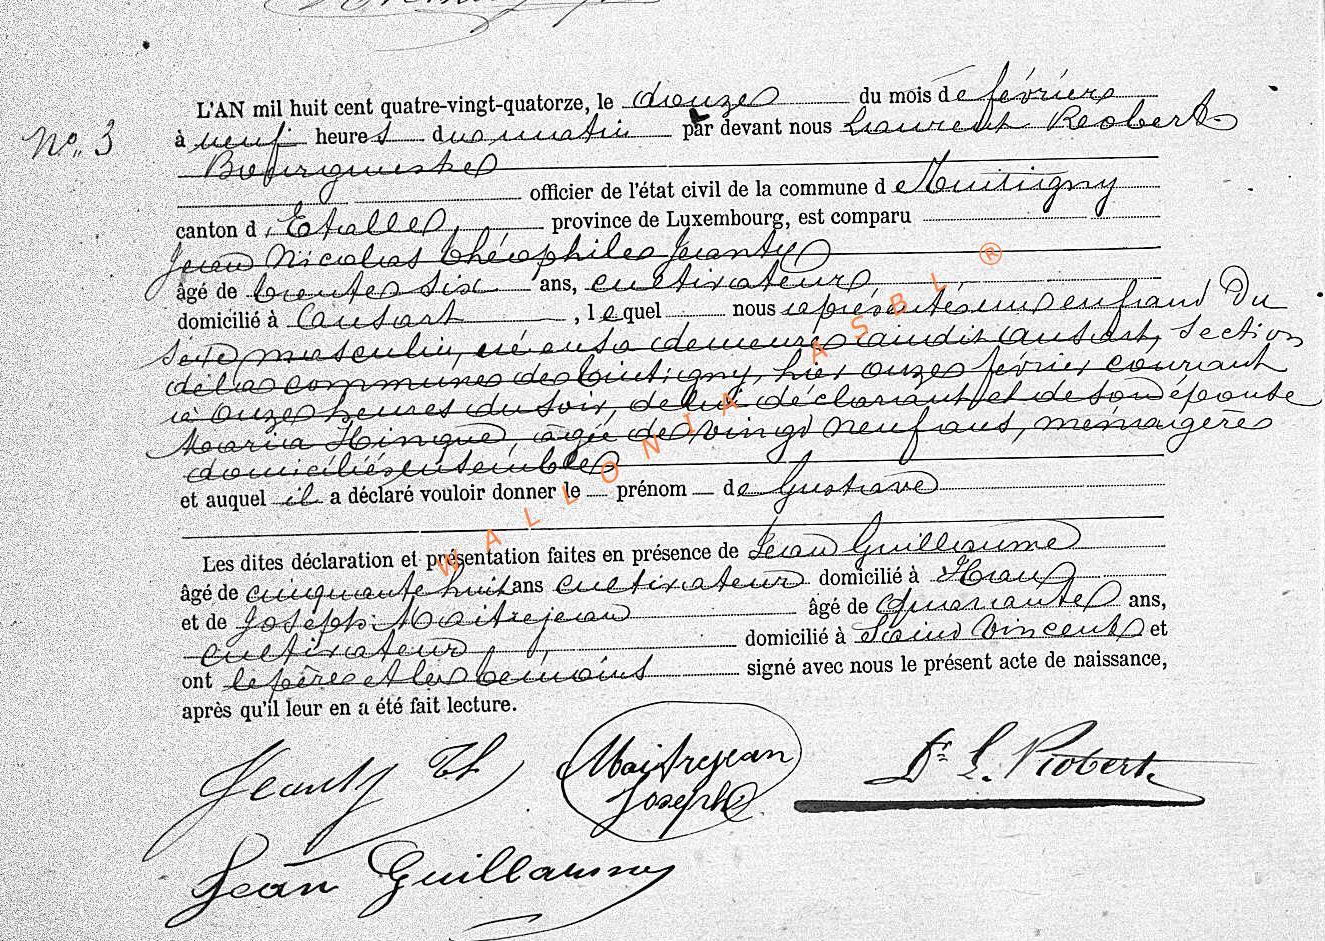 L'AN mil huit cent quatre-vingt-quatorze, le douze du mois de février
No. 3
à neuf heures du matin par devant nous Laurent Robert
Bourgmestre
officier de l'état civil de la commune de Tintigny
canton d'Etalle, province de Luxembourg, est comparu
Jean Nicolas Théophile Jeanty
âgé de trente six ans, cultivateur,
domicilié à Lansart, lequel nous a présenté un enfant du
sexe masculin, né en sa demeure audit Ansart, section
de la commune de Tintigny, hier onze février courant
à onze heures du soir, de lui déclarant et de son épouse
Maria Hinque, agée de vingt neuf ans, ménagère
domiciliés ensemble
et auquel il a déclaré vouloir donner le prénom de Gustave
Les dites déclaration et présentation faites en présence de Jean Guillaume
âgé de cinquante huit ans cultivateur domicilié à Han
et de Joseph Maitrejean âgé de quarante ans,
cultivateur, domicilié à Saint Vincent et
ont le père et les témoins signé avec nous le présent acte de naissance,
après qu'il leur en a été fait lecture.
Jeanty Th
Maitrejean
Joseph
Dr L. Robert
Jean Guillaume
WALLONIA ASBL ®